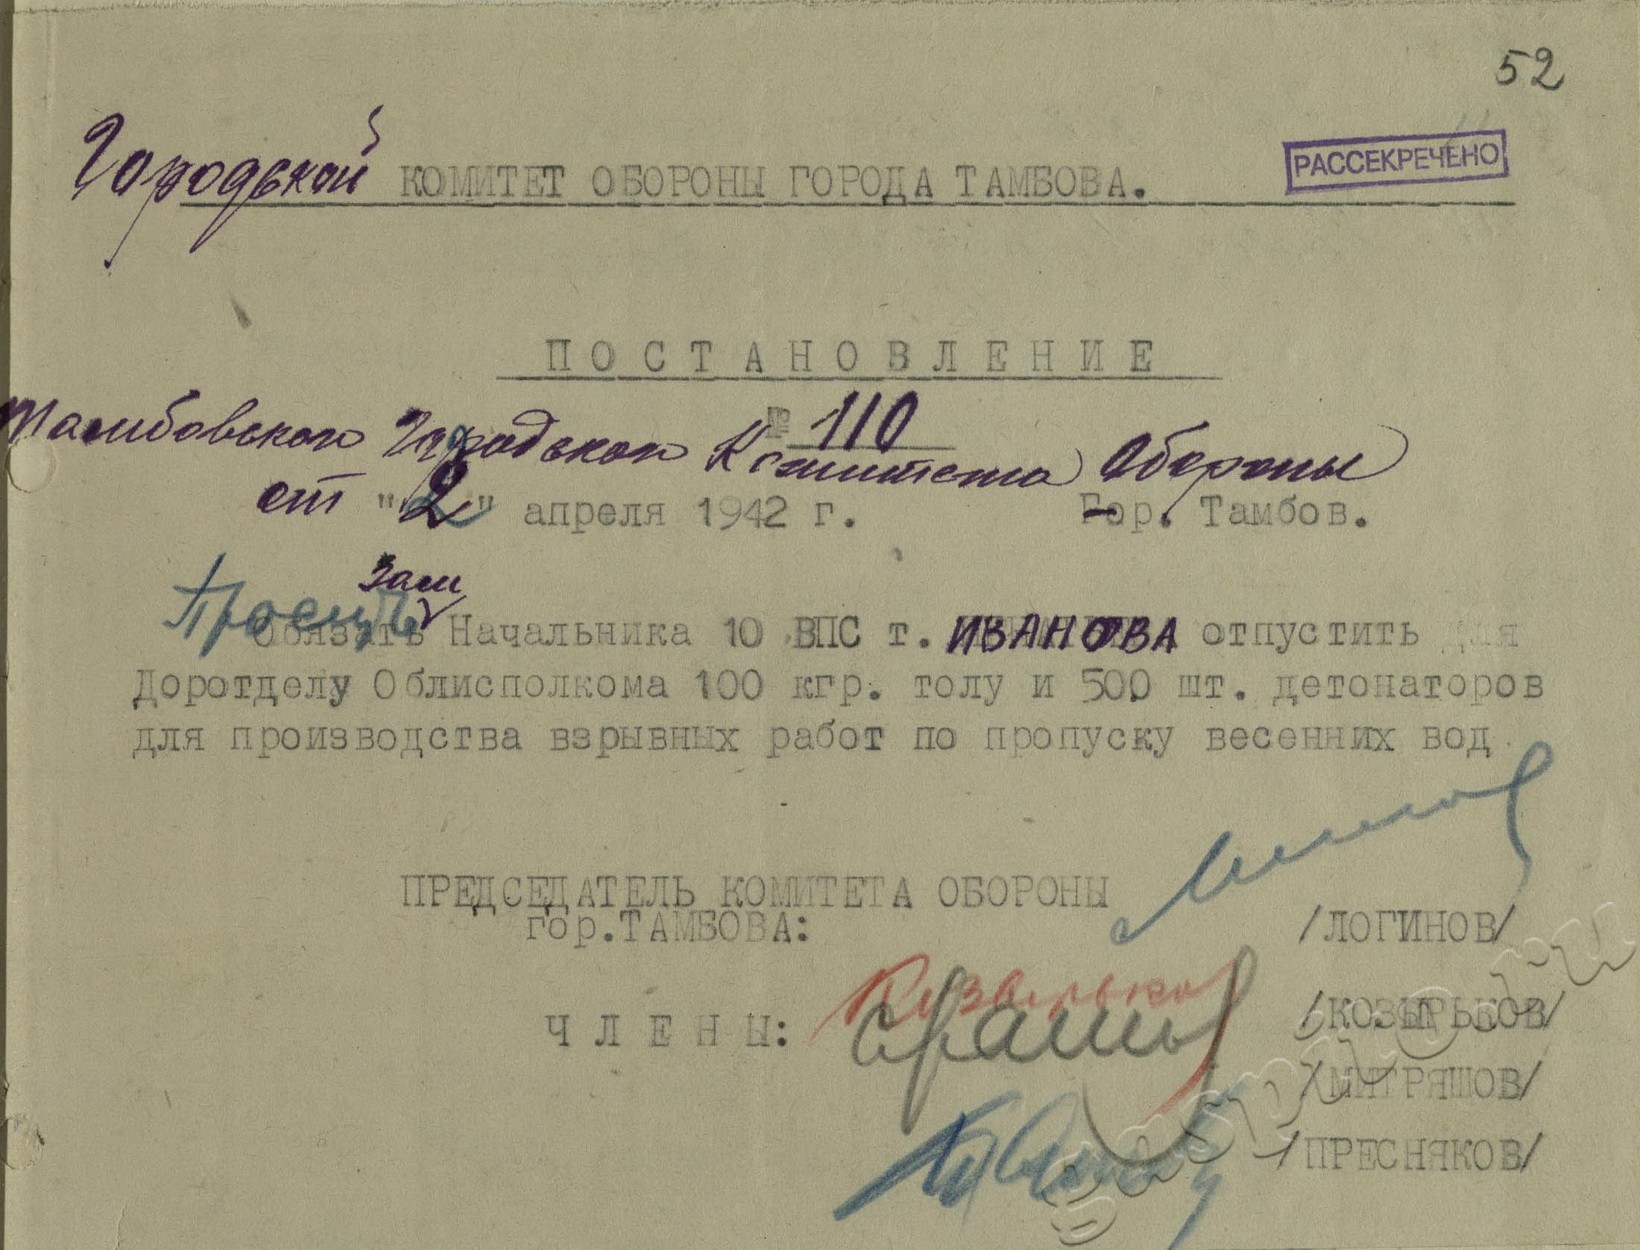 52
Городской КОМИТЕТ ОБОРОНЫ ГОРОДА ТАМБОВА.
РАССЕКРЕЧЕНО
ПОСТАНОВЛЕНИЕ
№ 110
Тамбовского Городского Комитета Обороны
от "2" апреля 1942 г. Гор. Тамбов.
Зам
Просить
Обязать Начальника 10 ВПС т. ИВАНОВА отпустить для
Доротделу Облисполкома 100 кгр. толу и 500 шт. детонаторов
для производства взрывных работ по пропуску весенних вод.
ПРЕДСЕДАТЕЛЬ КОМИТЕТА ОБОРОНЫ
гор.ТАМБОВА: /ЛОГИНОВ/
ЧЛЕНЫ: /КОЗЫРЬКОВ/
/МИГРЯШОВ/
/ПРЕСНЯКОВ/